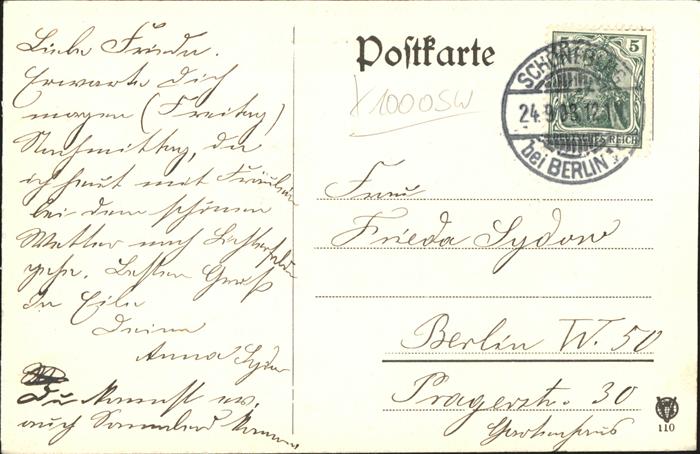 Liebe Frieda.
Erwarte Dich
morgen (Freitag)
Nachmittag, da
ich heut mit Fräulein
bei dem schönen
Wetter nach Lichterfelde
gehe. Besten Gruß
In Eile
Deine
Anna Sydow
Du kannst
auch
Postkarte
X1000SW
5
SCHÖNEBERG
24.9.08.12-1
bei BERLIN
DEUTSCHES REICH
Frau
Frieda Sydow
Berlin W. 50
Pragerstr. 30
Gartenhaus
110